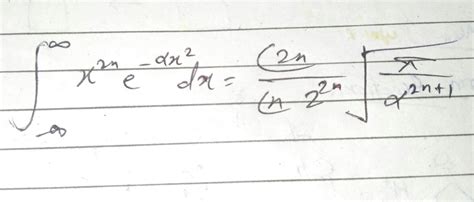 ∫_{-∞}^{∞} x^{2n} e^{-αx²} dx = \frac{⌊2n}{⌊n 2^{2n}} \sqrt{\frac{π}{α^{2n+1}}}